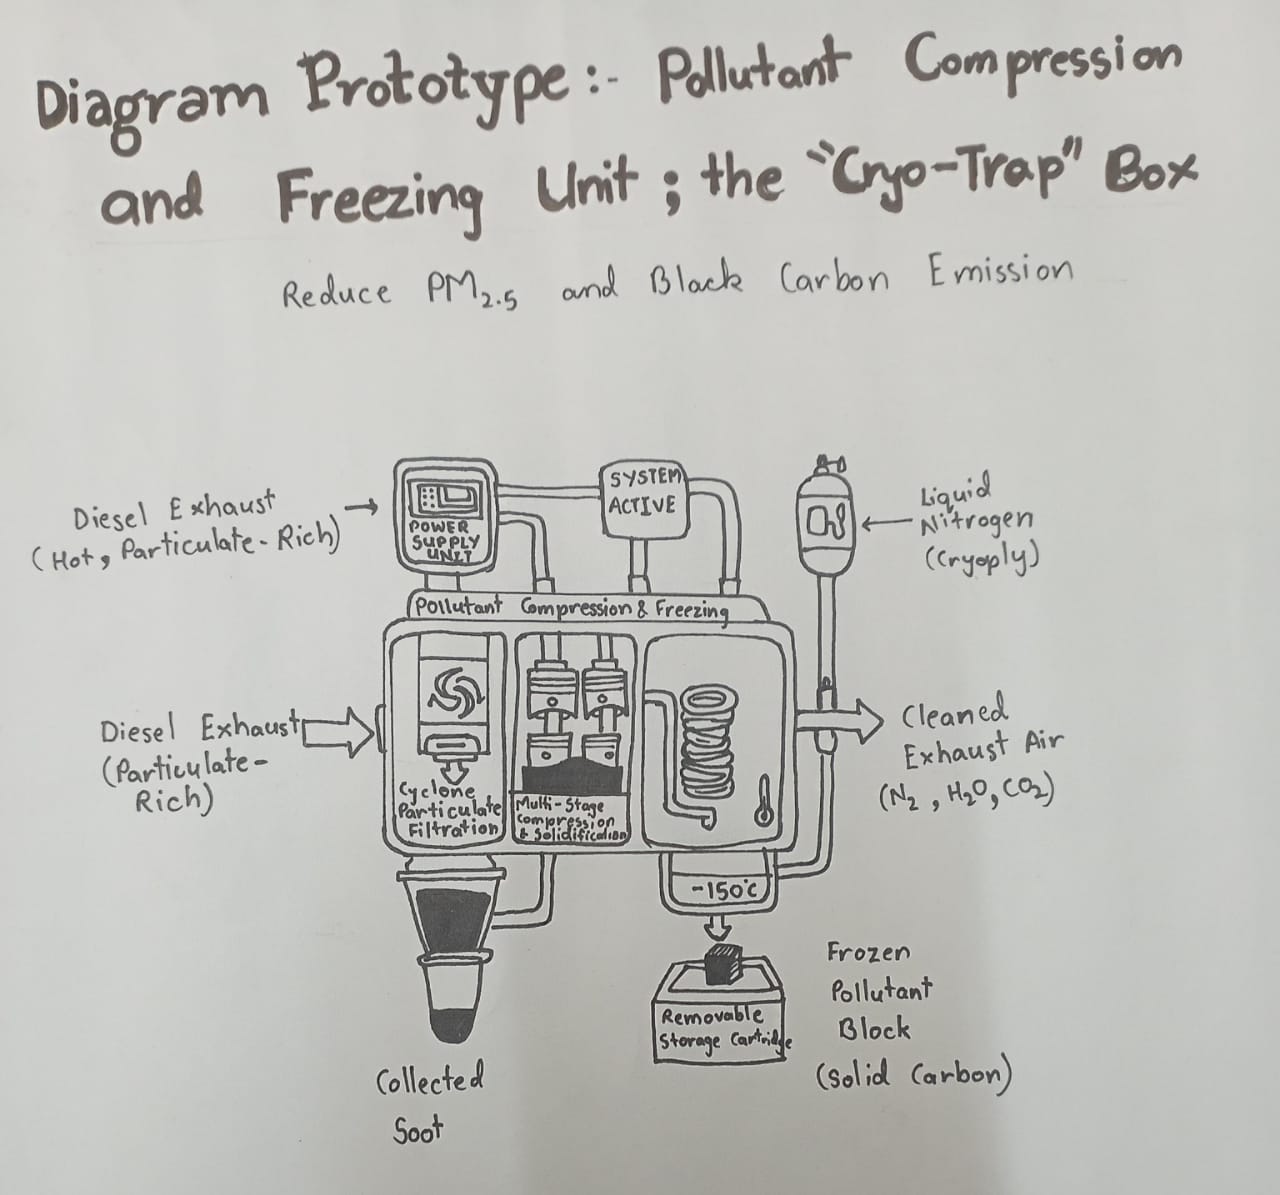 Diagram Prototype:- Pollutant Compression
and Freezing Unit; the "Cryo-Trap" Box
Reduce PM2.5 and Black Carbon Emission
Diesel Exhaust
(Hot, Particulate-Rich)
POWER
SUPPLY
UNIT
SYSTEM
ACTIVE
Liquid
Nitrogen
(Cryoply)
Pollutant Compression & Freezing
Diesel Exhaust
(Particulate-
Rich)
Cyclone
Particulate
Filtration
Multi-Stage
Compression
& Solidification
Cleaned
Exhaust Air
(N2, H2O, CO2)
-150°C
Removable
Storage Cartridge
Frozen
Pollutant
Block
(Solid Carbon)
Collected
Soot